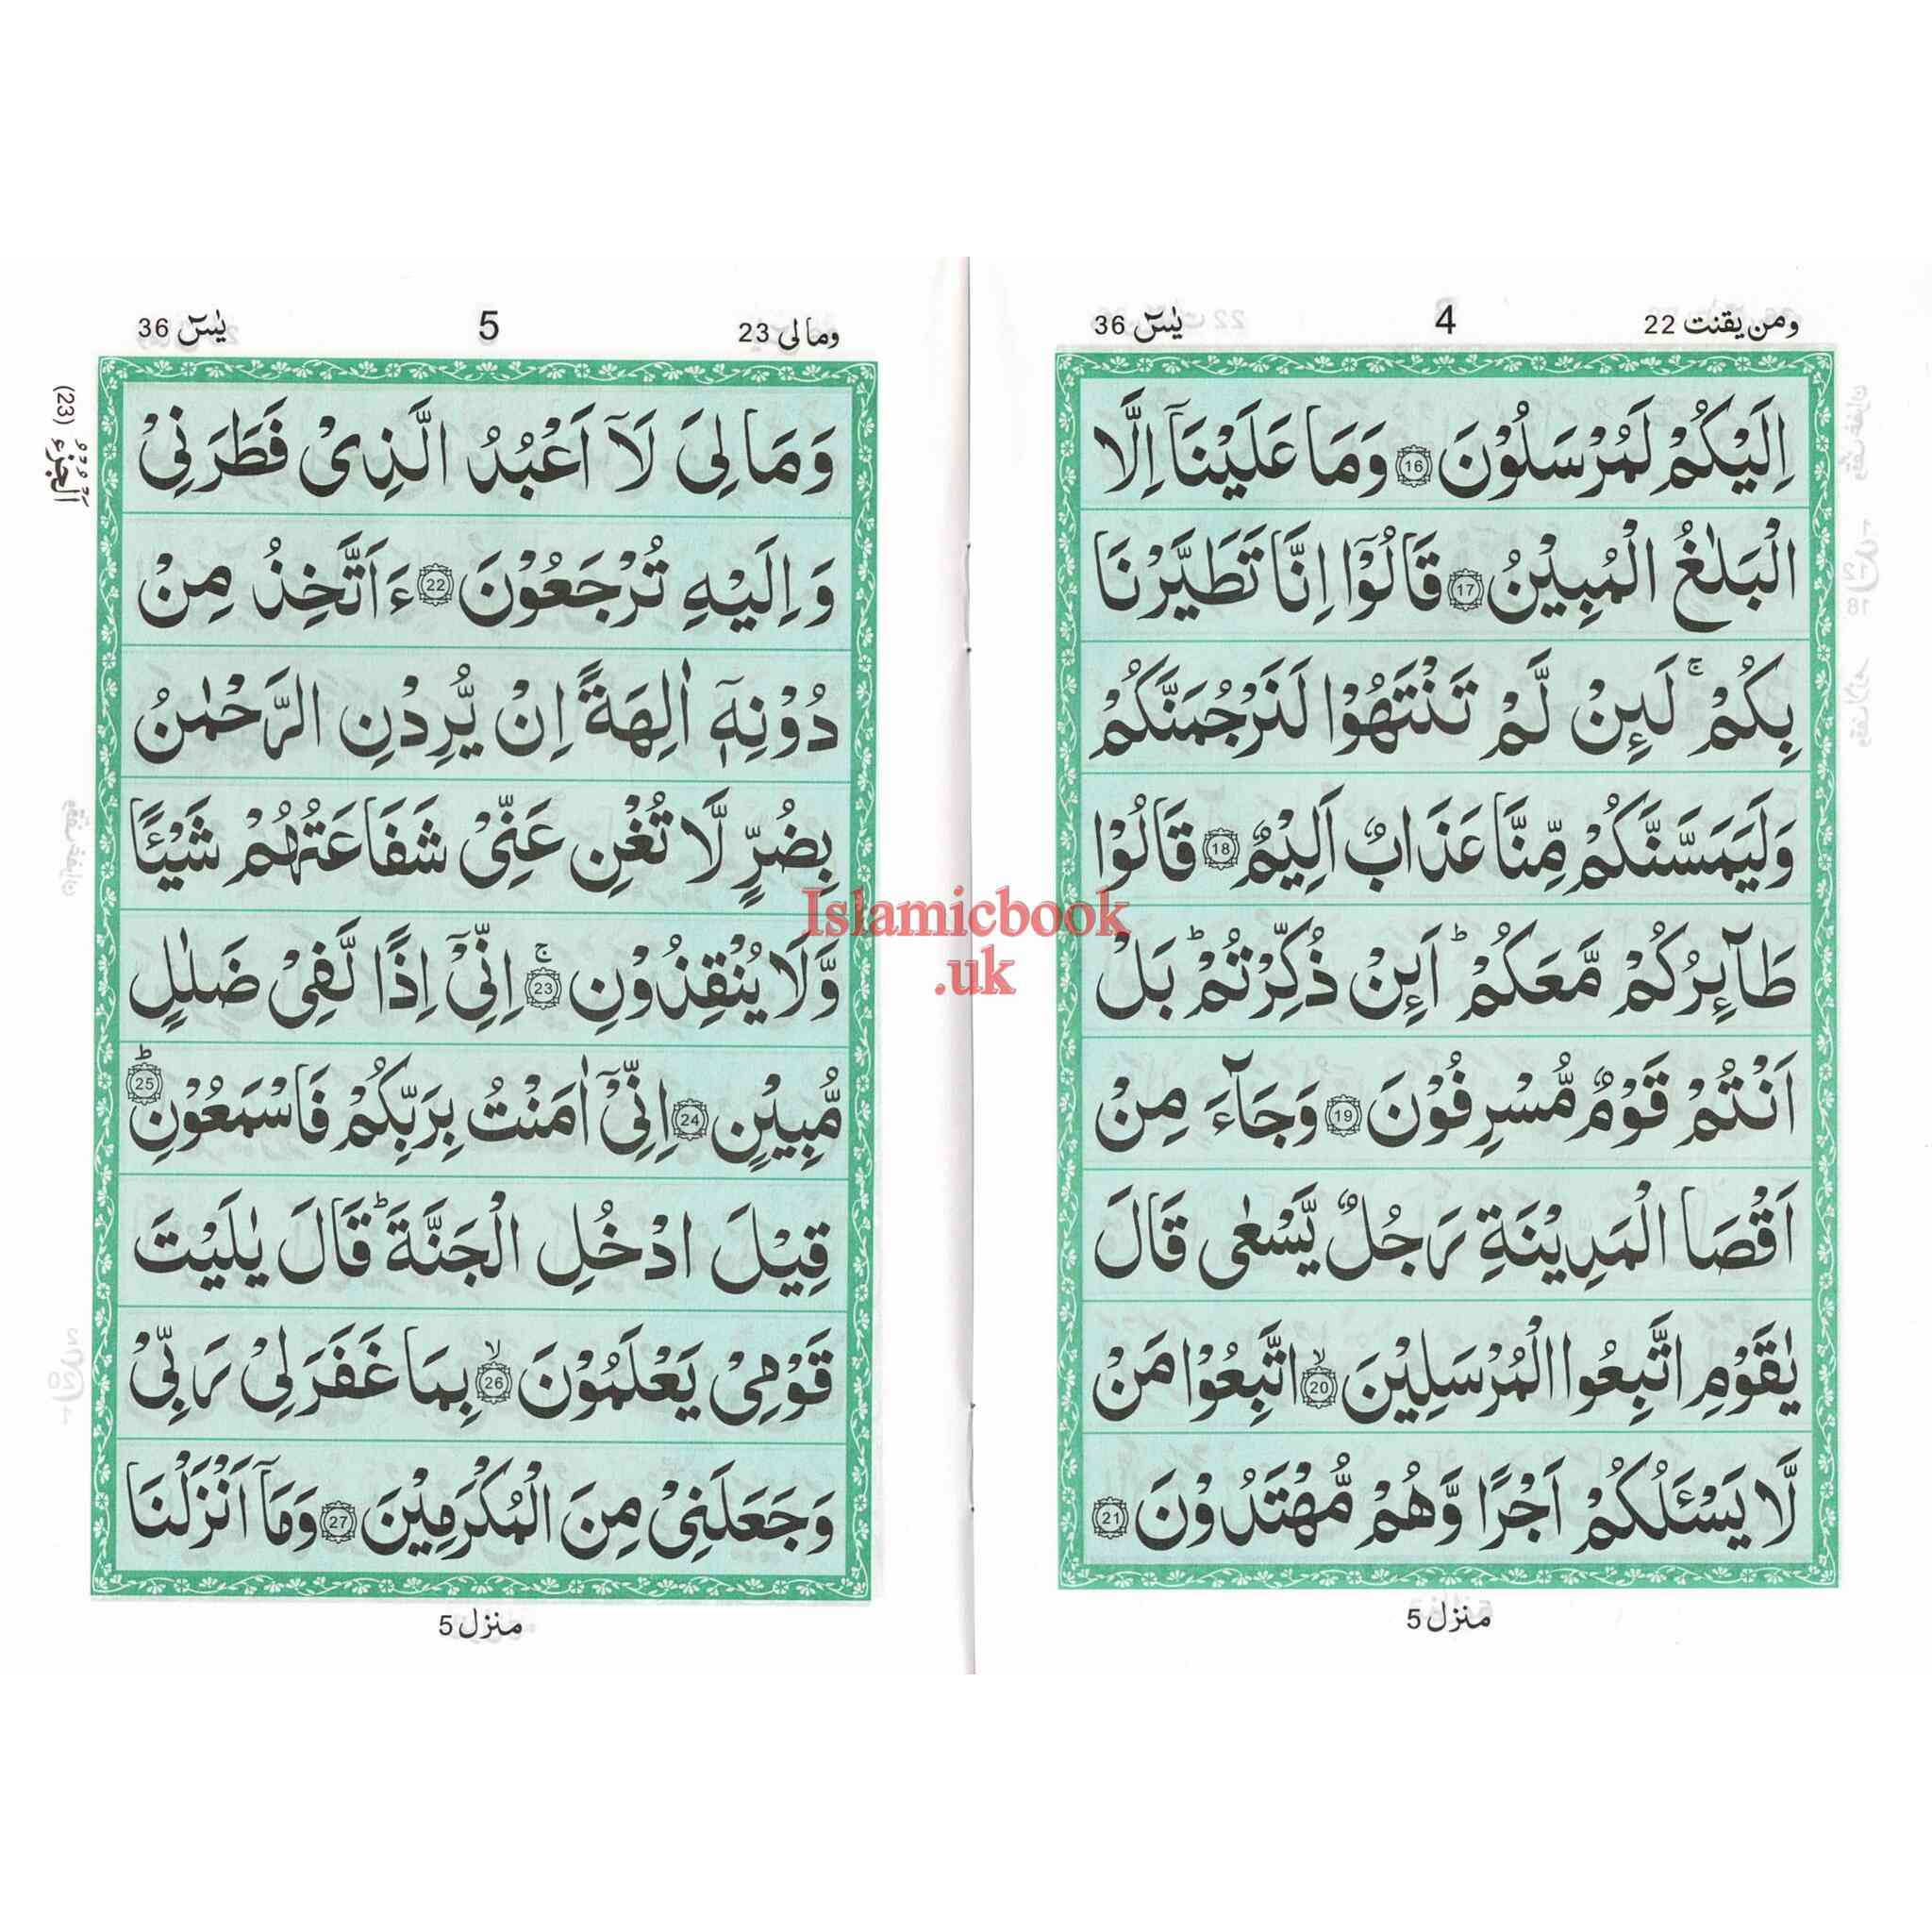 ومن يقنت 22
4
يٰسٓ 36
اِلَيْكُمْ لَمُرْسَلُوْنَ 16 وَمَا عَلَيْنَاۤ اِلَّا
الْبَلٰغُ الْمُبِيْنُ 17 قَالُوْۤا اِنَّا تَطَيَّرْنَا
بِكُمْ ۚ لَىِٕنْ لَّمْ تَنْتَهُوْا لَنَرْجُمَنَّكُمْ
وَلَيَمَسَّنَّكُمْ مِّنَّا عَذَابٌ اَلِيْمٌ 18 قَالُوْا
طَآىِٕرُكُمْ مَّعَكُمْ ؕ اَىِٕنْ ذُكِّرْتُمْ ؕ بَلْ
اَنْتُمْ قَوْمٌ مُّسْرِفُوْنَ 19 وَجَآءَ مِنْ
اَقْصَا الْمَدِيْنَةِ رَجُلٌ يَّسْعٰى قَالَ
يٰقَوْمِ اتَّبِعُوا الْمُرْسَلِيْنَ ۙ 20 اتَّبِعُوْا مَنْ
لَّا يَسْـَٔلُكُمْ اَجْرًا وَّهُمْ مُّهْتَدُوْنَ 21
منزل 5
ومالى 23
5
يٰسٓ 36
اَلْجُزْءُ (23)
وَمَا لِىَ لَاۤ اَعْبُدُ الَّذِىْ فَطَرَنِىْ
وَاِلَيْهِ تُرْجَعُوْنَ 22 ءَاَتَّخِذُ مِنْ
دُوْنِهٖۤ اٰلِهَةً اِنْ يُّرِدْنِ الرَّحْمٰنُ
بِضُرٍّ لَّا تُغْنِ عَنِّىْ شَفَاعَتُهُمْ شَيْـًٔا
وَّلَا يُنْقِذُوْنِ ۚ 23 اِنِّىْۤ اِذًا لَّفِىْ ضَلٰلٍ
مُّبِيْنٍ 24 اِنِّىْۤ اٰمَنْتُ بِرَبِّكُمْ فَاسْمَعُوْنِ ؕ 25
قِيْلَ ادْخُلِ الْجَنَّةَ ؕ قَالَ يٰلَيْتَ
قَوْمِىْ يَعْلَمُوْنَ ۙ 26 بِمَا غَفَرَلِىْ رَبِّىْ
وَجَعَلَنِىْ مِنَ الْمُكْرَمِيْنَ 27 وَمَاۤ اَنْزَلْنَا
منزل 5
Islamicbook
.uk